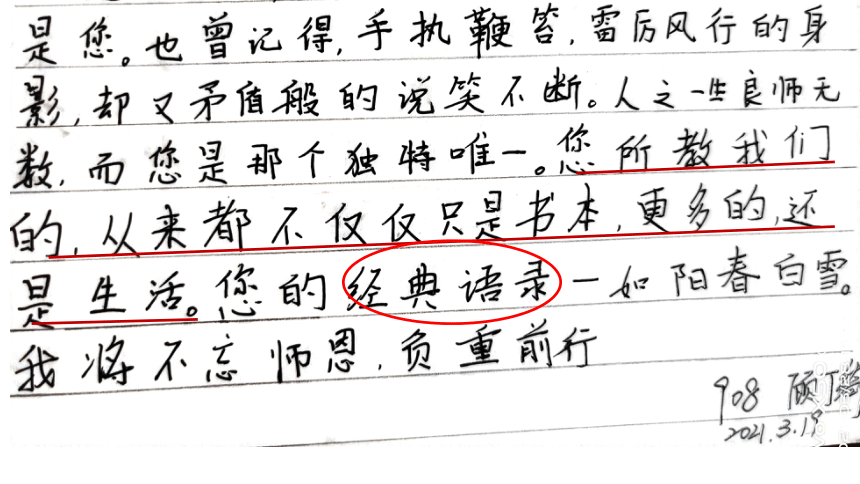 是您。也曾记得,手执鞭笞,雷厉风行的身
影,却又矛盾般的说笑不断。人之一生良师无
数,而您是那个独特唯一。您所教我们
的,从来都不仅仅只是书本,更多的,还
是生活。您的经典语录一如阳春白雪。
我将不忘师恩,负重前行
908 顾丁
2021.3.19